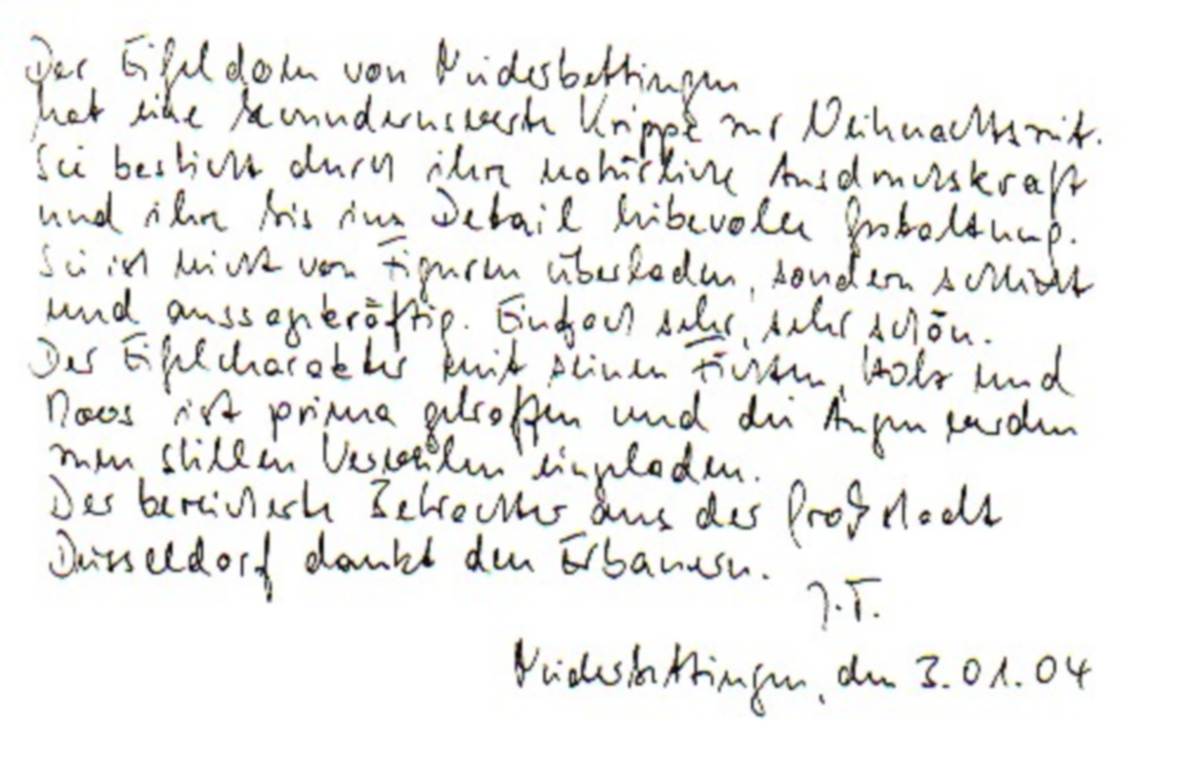 Der Eifeldom von Niedesbettingen
hat eine bewundernswerte Krippe zur Weihnachtszeit.
Sie besticht durch ihre natürliche Ausdruckskraft
und ihre bis ins Detail liebevolle Gestaltung.
Sie ist nicht von Figuren überladen, sondern schlicht
und aussagekräftig. Einfach sehr, sehr schön.
Der Eifelcharakter mit seinen Fichten, Holz und
Moos ist prima getroffen und die Augen werden
zum stillen Verweilen eingeladen.
Der bereicherte Betrachter aus der Großstadt
Düsseldorf dankt den Erbauern.
J.T.
Niedesbettingen, den 3.01.04